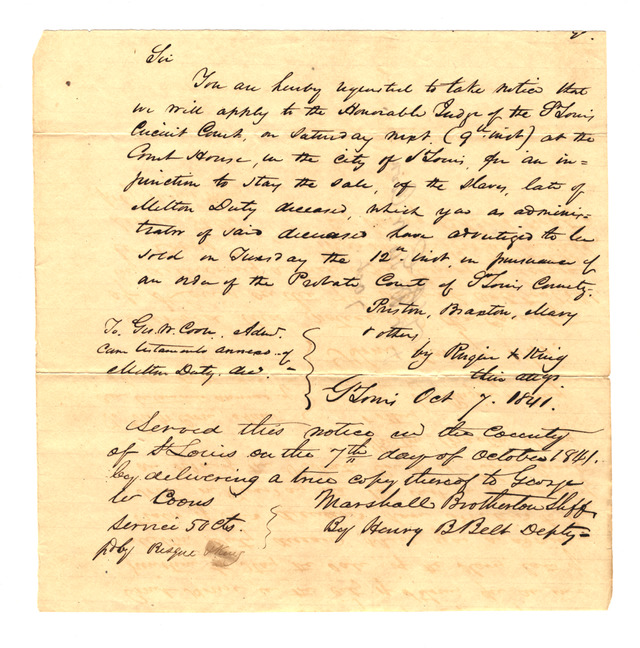 Sir
You are hereby requested to take notice that
we will apply to the Honorable Judge of the St Louis
Circuit Court, on Saturday next (9th inst) at the
Court House, in the city of St Louis, for an in=
junction to stay the sale, of the slaves, late of
Melton Duty deceased, which you as adminis=
trator of said deceased have advertized to be
sold on Tuesday the 12th inst. in pursuance of
an order of the Probate Court of St Louis County.
Preston, Braxton, Mary
& others
by Risque & King
their attys
To Geo. W. Coons, Admr.
Cum testamento annexo of
Melton Duty decd.
St Louis Oct 7. 1841.
Served this notice in the County
of St Louis on the 7th day of October 1841.
by delivering a true copy thereof to George
W Coons
Marshall Brotherton Shff
By Henry B Belt Depty
Service 50 cts.
pd by Risque